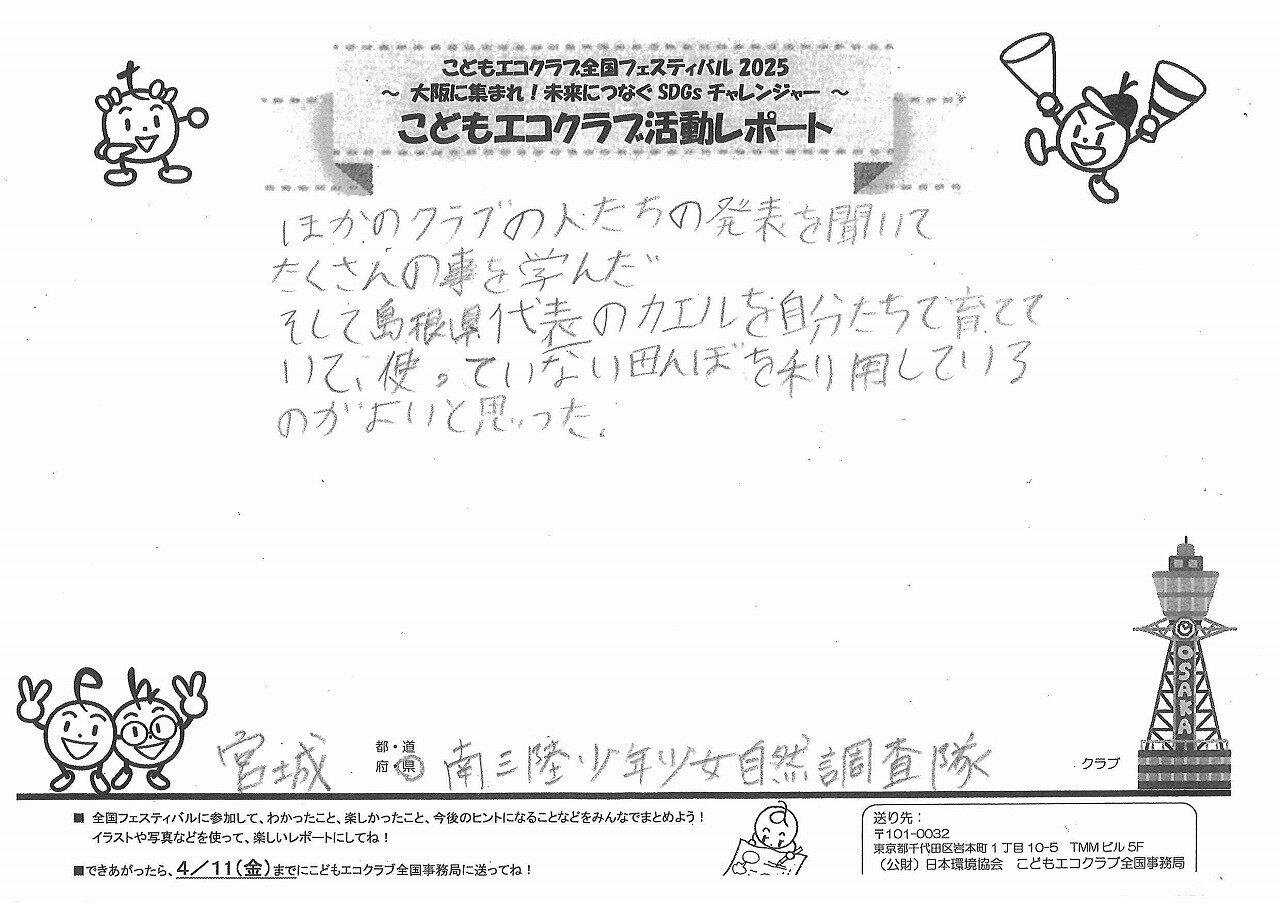 こどもエコクラブ全国フェスティバル 2025
～ 大阪に集まれ！未来につなぐ SDGs チャレンジャー ～
こどもエコクラブ活動レポート
ほかのクラブの人たちの発表を聞いて
たくさんの事を学んだ
そして島根県代表のカエルを自分たちで育てて
いて、使っていない田んぼを利用している
のがよいと思った。
OSAKA
宮城 都・道
府・県 南三陸少年少女自然調査隊 クラブ
■ 全国フェスティバルに参加して、わかったこと、楽しかったこと、今後のヒントになることなどをみんなでまとめよう！
イラストや写真などを使って、楽しいレポートにしてね！
■できあがったら、4／11(金)までにこどもエコクラブ全国事務局に送ってね！
送り先：
〒101-0032
東京都千代田区岩本町１丁目 10-5 TMM ビル 5F
（公財）日本環境協会 こどもエコクラブ全国事務局